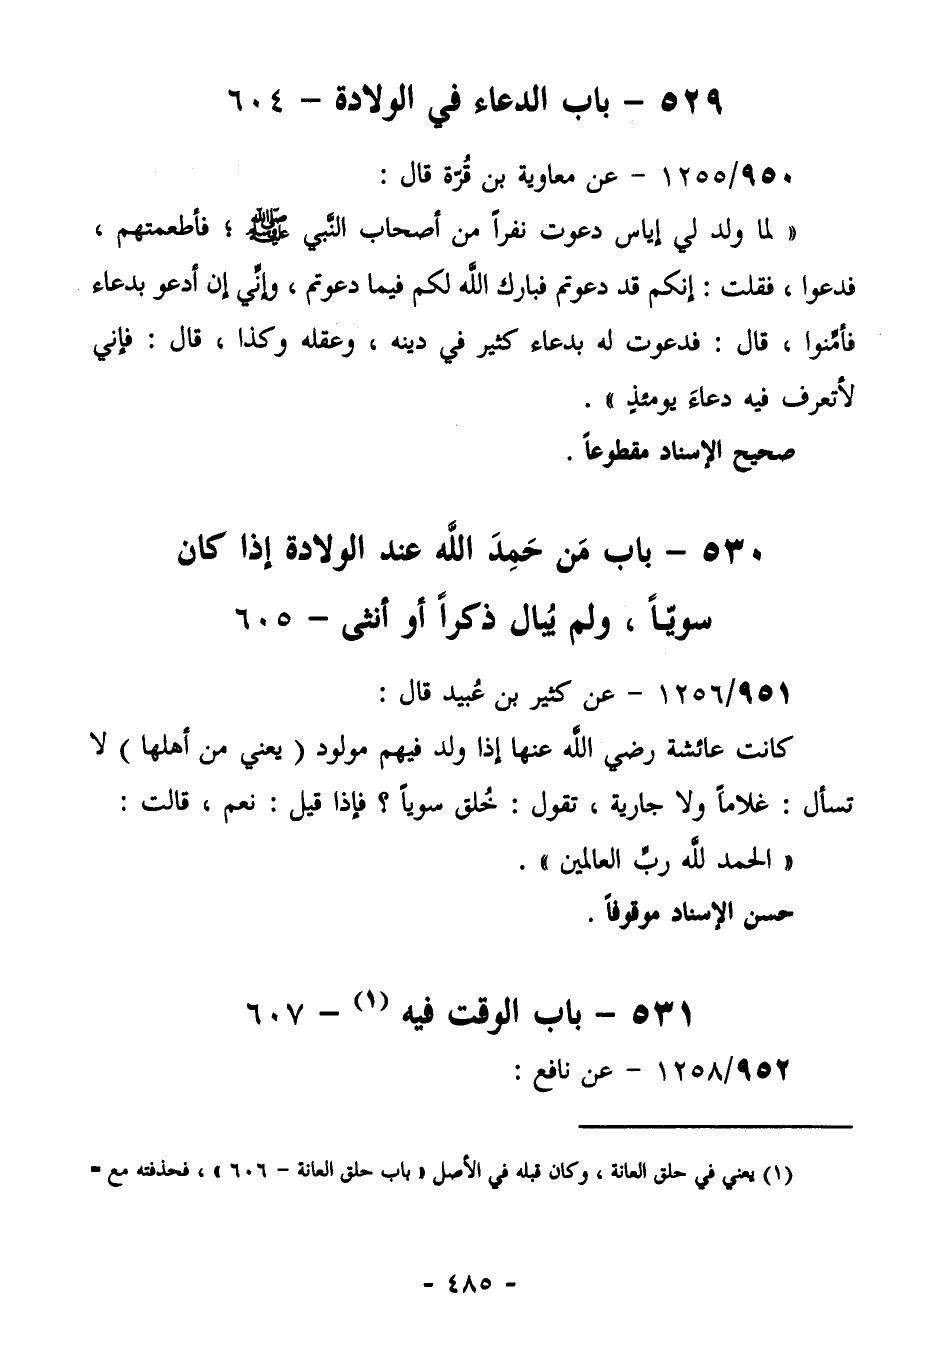 ٥٢٩ - باب الدعاء في الولادة - ٦٠٤
١٢٥٥/٩٥٠ - عن معاوية بن قُرّة قال :
« لما ولد لي إياس دعوت نفراً من أصحاب النَّبي ﷺ ؛ فأطعمتهم ،
فدعوا ، فقلت : إنكم قد دعوتم فبارك اللَّه لكم فيما دعوتم ، وإنِّي إن أدعو بدعاء
فأمِّنوا ، قال : فدعوت له بدعاء كثير في دينه ، وعقله وكذا ، قال : فإني
لأتعرف فيه دعاءَ يومئذٍ » .
صحيح الإسناد مقطوعاً .
٥٣٠ - باب مَن حَمِدَ اللَّه عند الولادة إذا كان
سويّاً ، ولم يُبال ذكراً أو أنثى - ٦٠٥
١٢٥٦/٩٥١ - عن كثير بن عُبيد قال :
كانت عائشة رضي اللَّه عنها إذا ولد فيهم مولود ( يعني من أهلها ) لا
تسأل : غلاماً ولا جارية ، تقول : خُلق سوياً ؟ فإذا قيل : نعم ، قالت :
« الحمد للَّه ربِّ العالمين » .
حسن الإسناد موقوفاً .
٥٣١ - باب الوقت فيه (١) - ٦٠٧
١٢٥٨/٩٥٢ - عن نافع :
(١) يعني في حلق العانة ، وكان قبله في الأصل « باب حلق العانة - ٦٠٦ » ، فحذفته مع =
- ٤٨٥ -